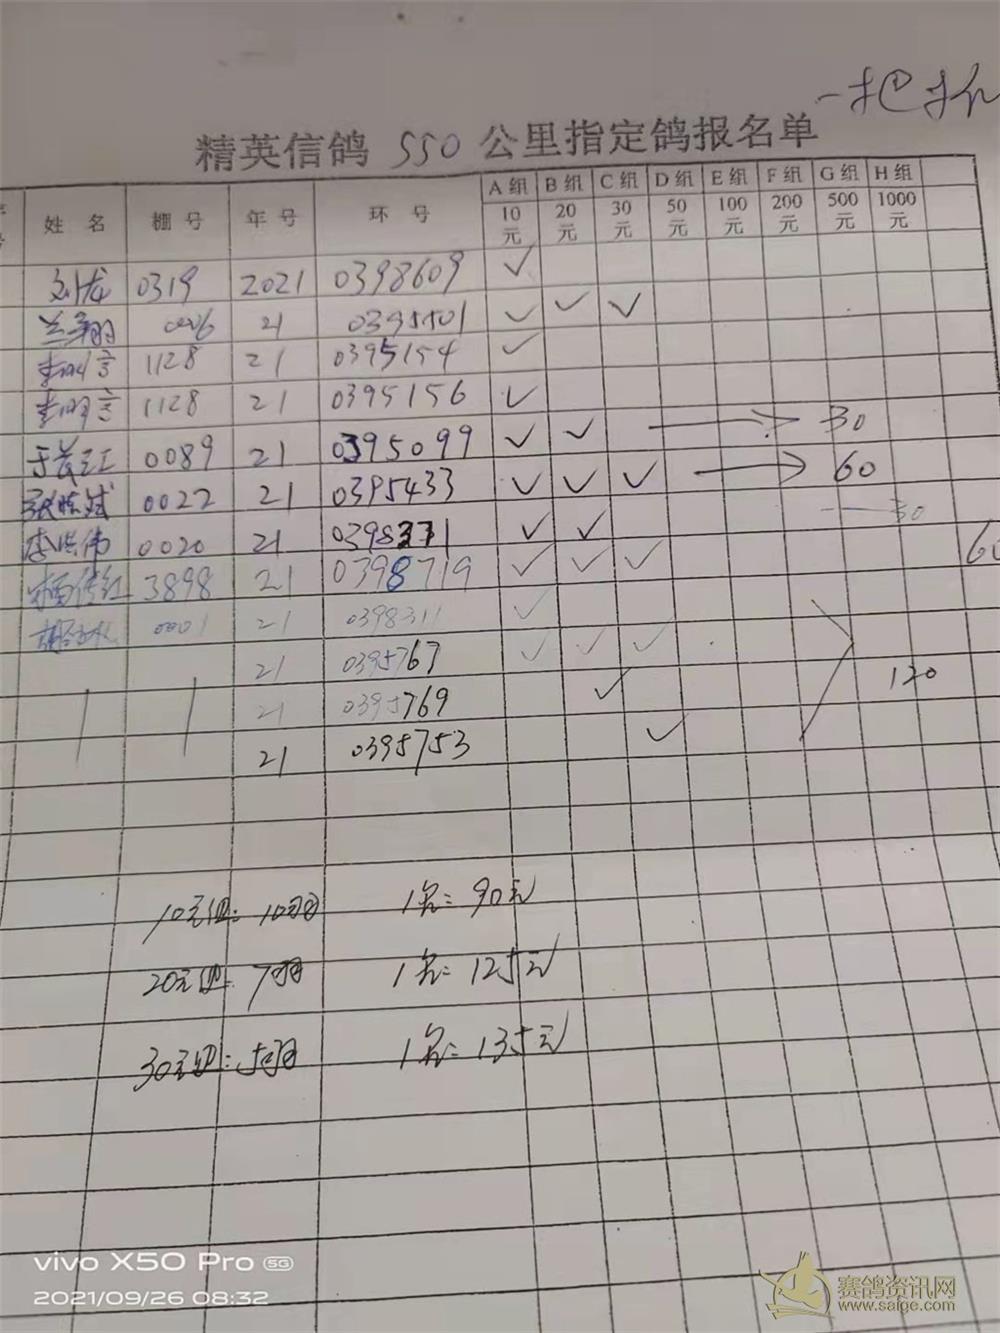 精英信鸽 550 公里指定鸽报名单
姓 名 棚 号 年 号 环 号 A组 10元 B组 20元 C组 30元 D组 50元 E组 100元 F组 200元 G组 500元 H组 1000元
刘龙 0319 2021 0398609 ✓
21 0395501 ✓ ✓ ✓
李明言 1128 21 0395154 ✓
李明言 1128 21 0395156 ✓
0089 21 0395099 ✓ ✓ → 30
0022 21 0395433 ✓ ✓ ✓ → 60
李洪伟 0020 21 0398331 ✓ ✓ — 30
杨传红 3898 21 0398719 ✓ ✓ ✓ 60
0001 21 0398311 ✓
21 0395767 ✓ ✓ ✓
21 0395769 ✓ 120
21 0395753 ✓
10元组: 10羽 1名: 90元
20元组: 7羽 1名: 125元
30元组: 5羽 1名: 135元
vivo X50 Pro 5G
2021/09/26 08:32
赛鸽资讯网
www.saige.com